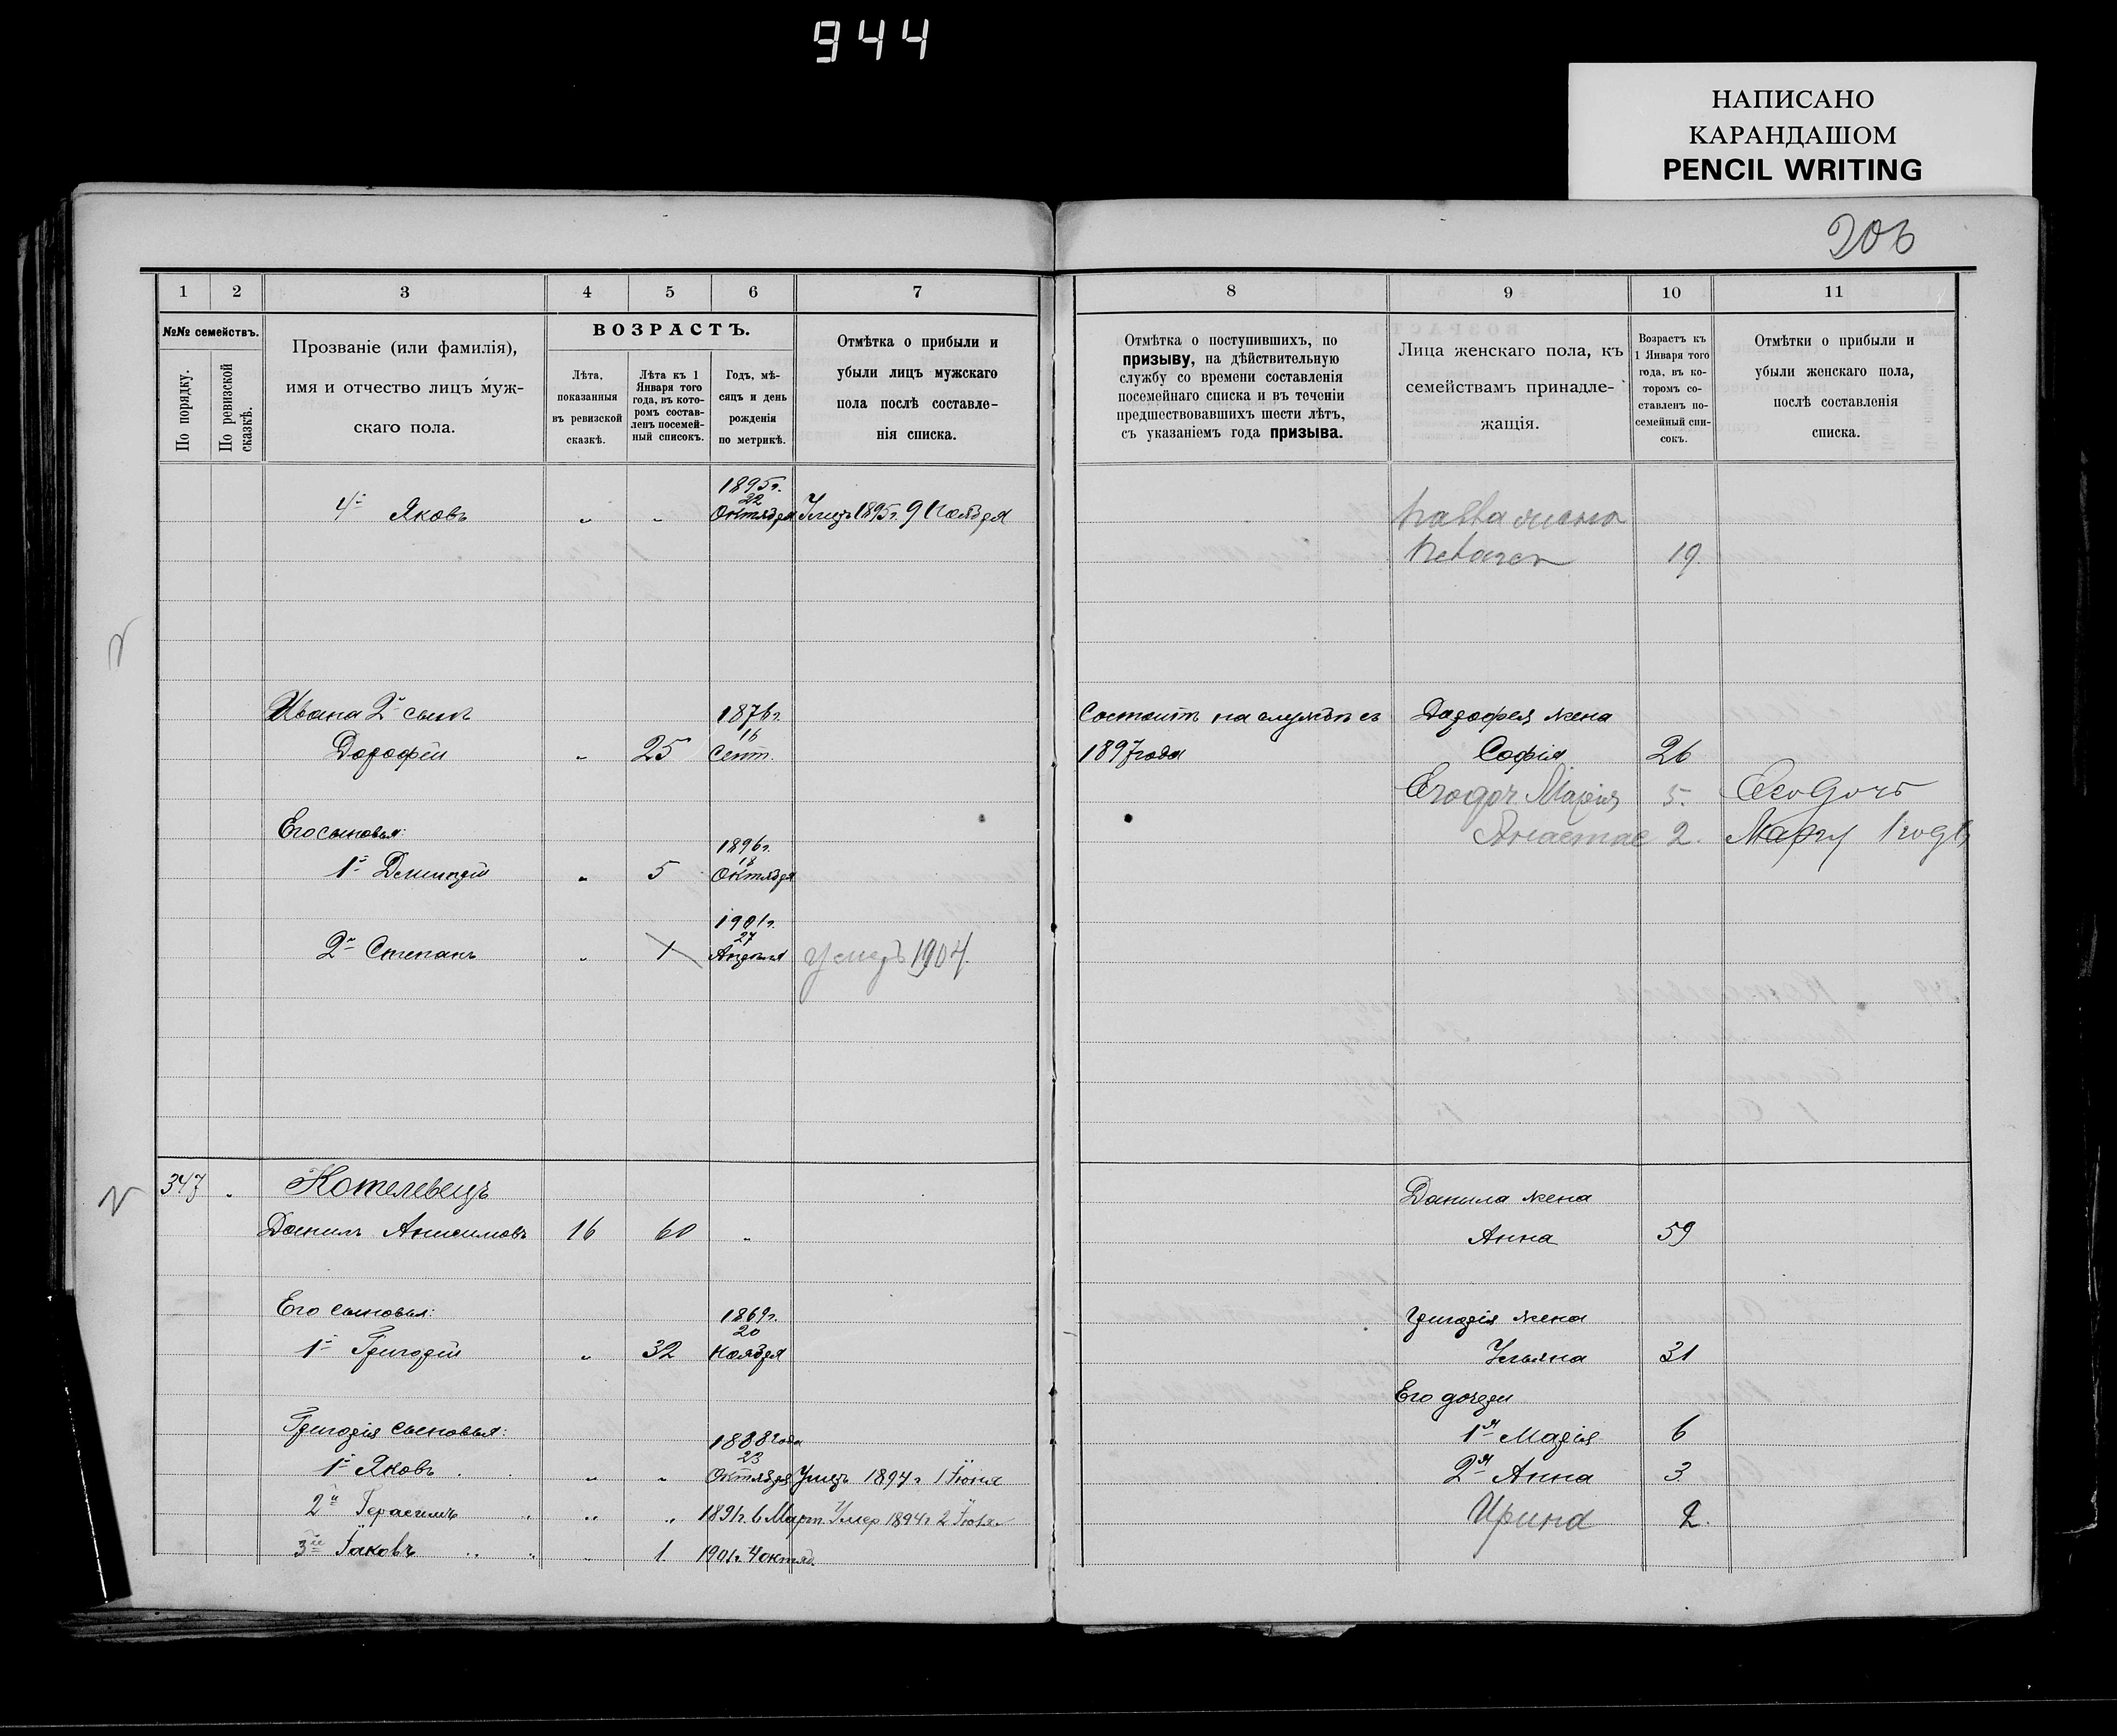 944
НАПИСАНО
КАРАНДАШОМ
PENCIL WRITING
206
1 2 3 4 5 6 7 8 9 10 11
№№ семействъ.
По порядку.
По ревизской сказкѣ.
Прозваніе (или фамилія),
имя и отчество лицъ муж-
скаго пола.
ВОЗРАСТЪ.
Лѣта,
показанныя
въ ревизской
сказкѣ.
Лѣта къ 1
Января того
года, въ кото-
ромъ состав-
ленъ посемей-
ный списокъ.
Годъ, мѣ-
сяцъ и день
рожденія
по метрикѣ.
Отмѣтка о прибыли и
убыли лицъ мужскаго
пола послѣ составле-
нія списка.
Отмѣтка о поступившихъ, по
призыву, на дѣйствительную
службу со времени составленія
посемейнаго списка и въ теченіи
предшествовавшихъ шести лѣтъ,
съ указаніемъ года призыва.
Лица женскаго пола, къ
семействамъ принадле-
жащія.
Возрастъ къ
1 Января того
года, въ ко-
торомъ со-
ставленъ по-
семейный спи-
сокъ.
Отмѣтки о прибыли и
убыли женскаго пола,
послѣ составленія
списка.
1895г.
22
4й Яковъ " " Октября Умеръ 1895г. 9 Ноября
жена
19
Ивана 2й сынъ 1876г. Состоитъ на службѣ съ Дорофея жена
16
Дорофѣй " 25 Сент. 1897 года Софія 26
Его доч Марія 5.
Анастас 2.
Его сыновья:
1896г.
18
1й Димитрій " 5 Октября
1901г.
27
2й Степанъ " 1 Апрѣля умеръ 1904.
347 " Котелевецъ Данила жена
Данилъ Анисимовъ 16 60 " Анна 59
Его сыновья: 1869г. Григорія жена
20
1й Григорій " 32 Ноября Ульяна 31
Его дочери
Григорія сыновья: 1888 года 1я Марія 6
23
1й Яковъ " " Октября Умеръ 1894г 1 Іюня 2я Анна 3
2й Герасимъ " " 1891г. 6 Март. Умер 1894г 2 Іюля Ирина 2.
3й Іаковъ " 1 1901г. 4 октяб.